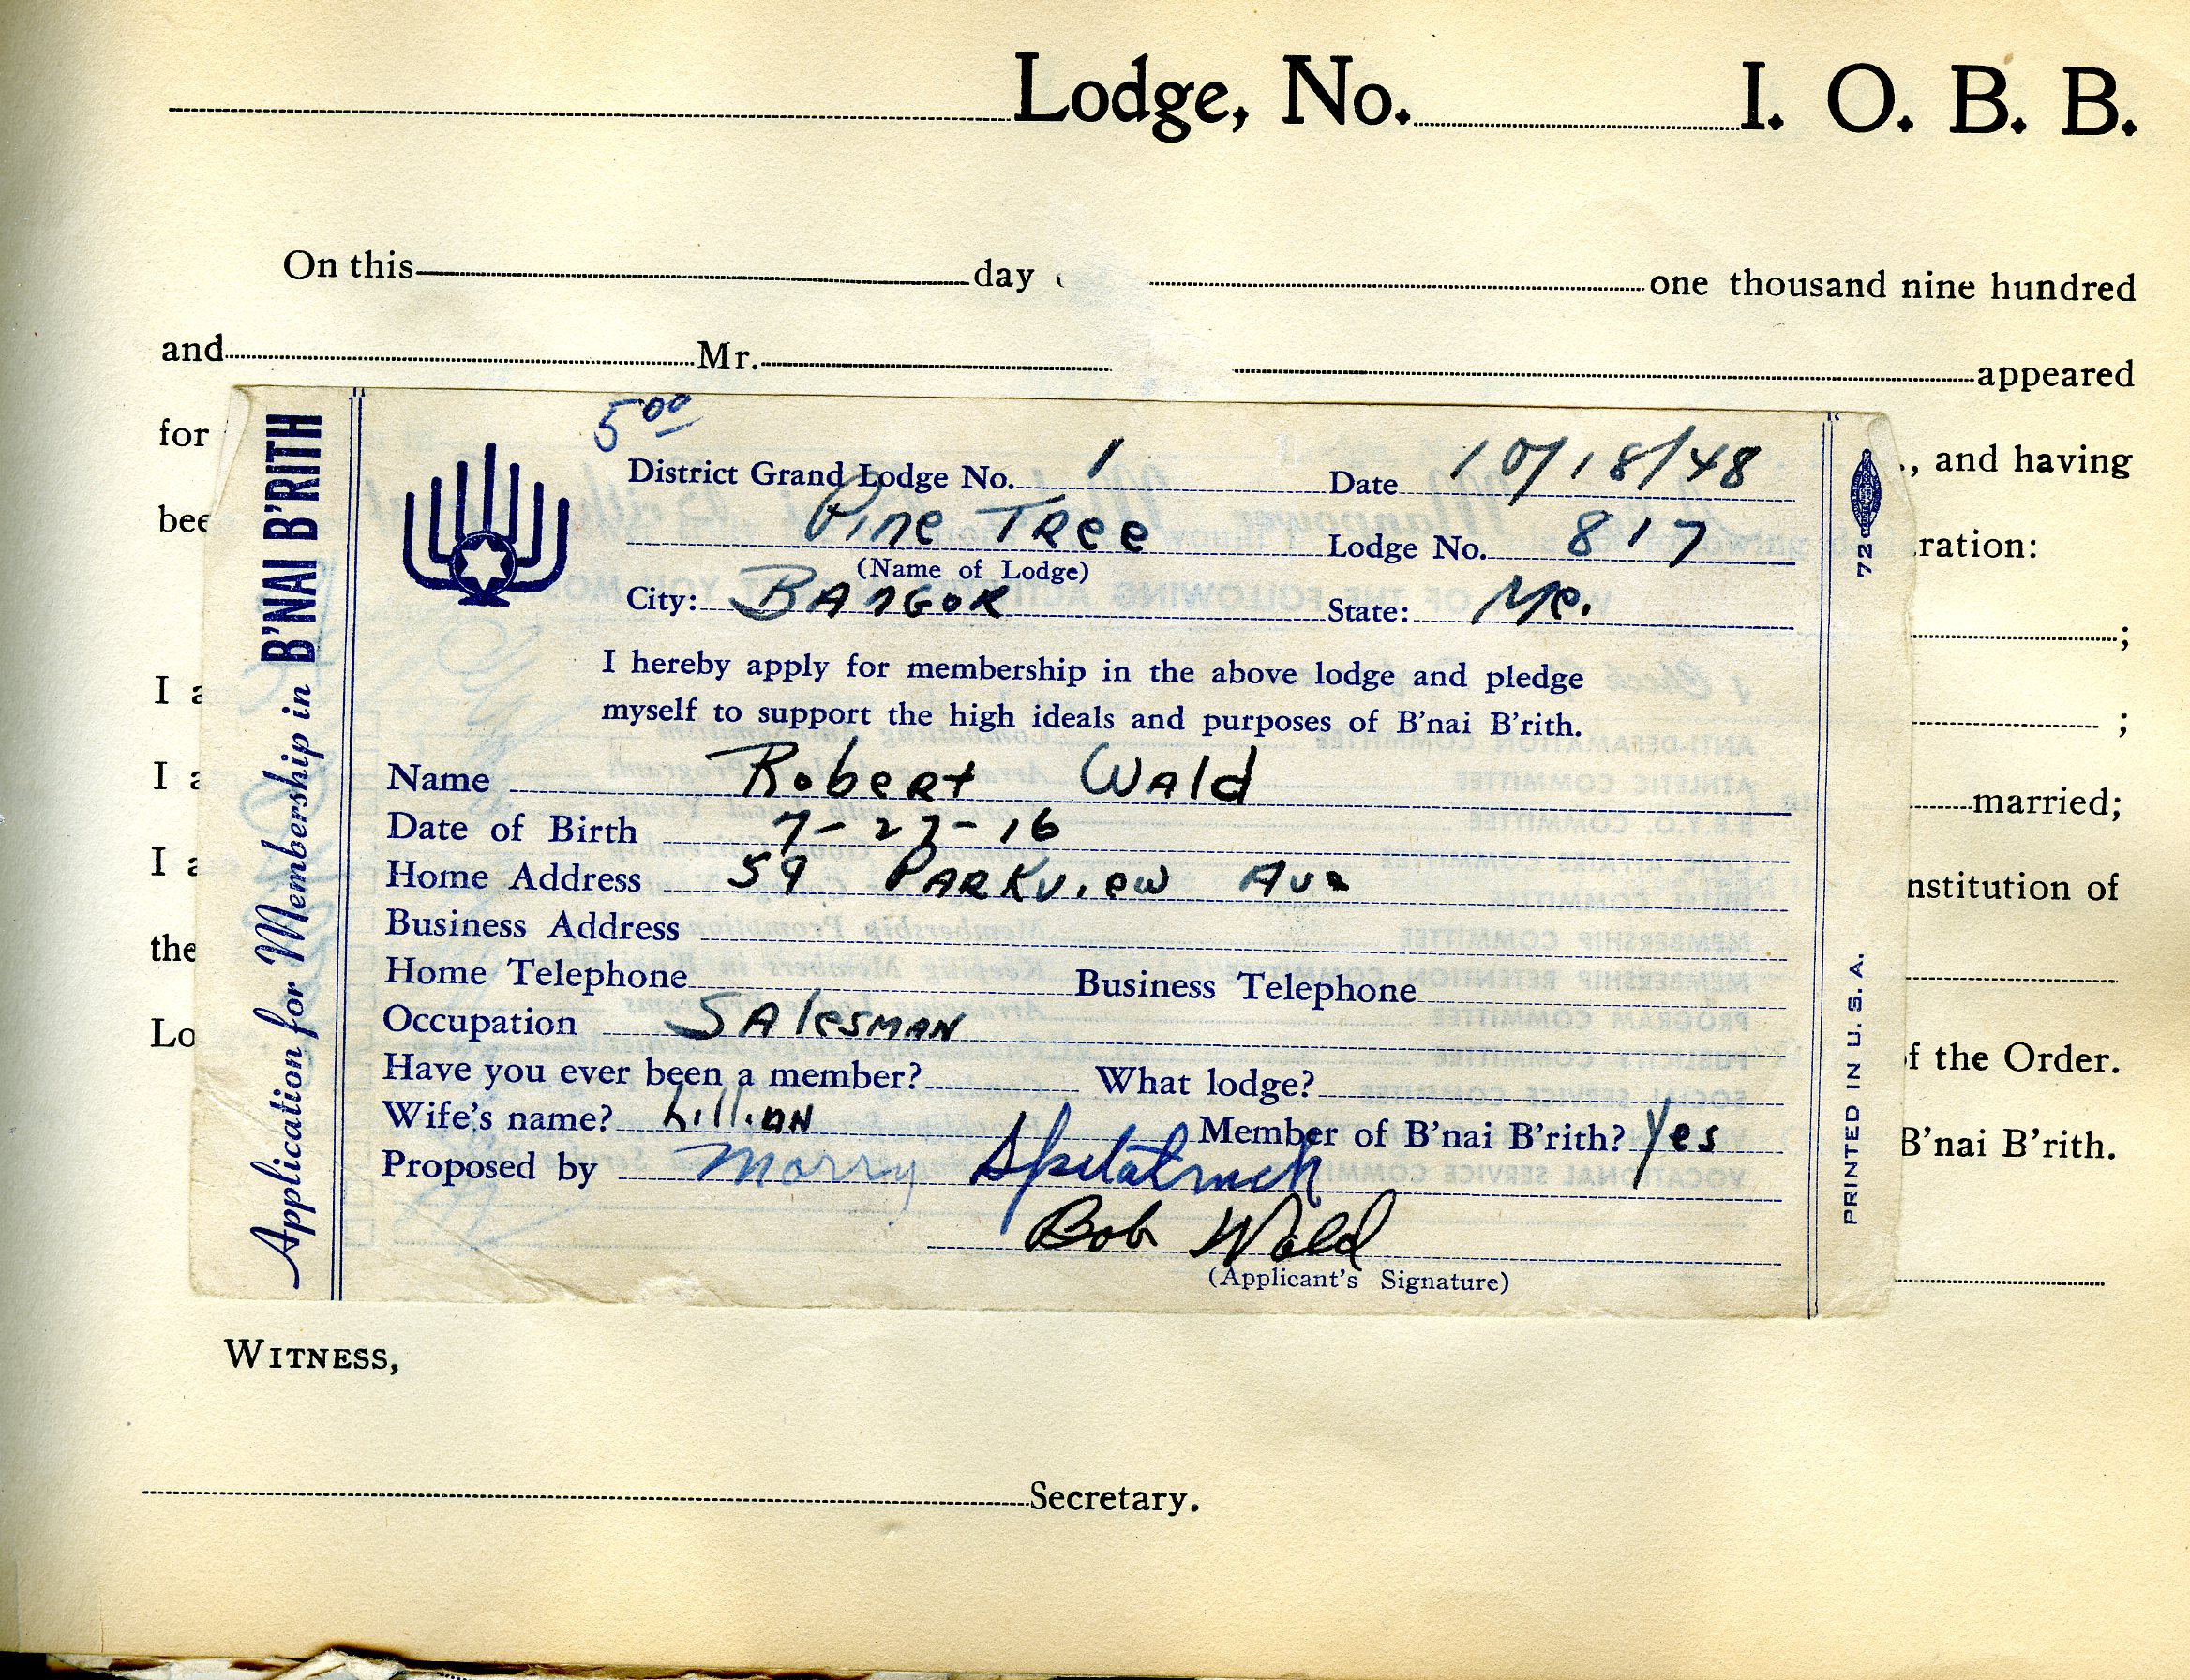 Lodge, No. I. O. B. B.
On this day one thousand nine hundred
and Mr. appeared
for ., and having
bee ration:
;
I a ;
I a married;
I a nstitution of
the
Lo f the Order.
B'nai B'rith.
WITNESS,
Secretary.
Application for Membership in B'NAI B'RITH
5 00
District Grand Lodge No. 1 Date 10/18/48
Pine Tree Lodge No. 817
(Name of Lodge)
City: BANGOR State: Me.
I hereby apply for membership in the above lodge and pledge
myself to support the high ideals and purposes of B'nai B'rith.
Name Robert Wald
Date of Birth 7-27-16
Home Address 59 Parkview Ave
Business Address
Home Telephone Business Telephone
Occupation Salesman
Have you ever been a member? What lodge?
Wife's name? Lillian Member of B'nai B'rith? Yes
Proposed by Morry
Bob Wald
(Applicant's Signature)
72
PRINTED IN U. S. A.